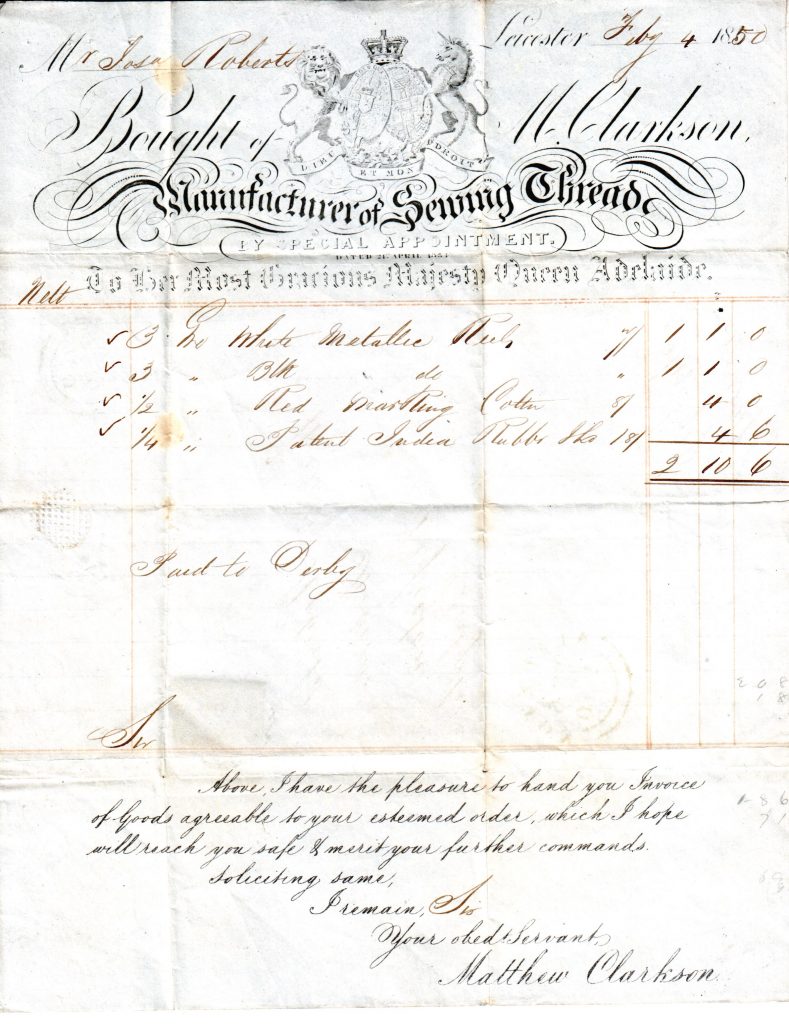 Leicester Feby 4 1850
Mr Josa Roberts
Bought of M. Clarkson,
DIEU ET MON DROIT
Manufacturer of Sewing Thread,
BY SPECIAL APPOINTMENT.
DATED 21 APRIL
To Her Most Gracious Majesty Queen Adelaide.
Nett
3 Do White Metallic Reels 7/ 1 1 0
3 " Blk do " 1 1 0
1/2 " Red Marking Cotton 8/ 4 0
1/4 " Patent India Rubber 18/ 4 6
2 10 6
Paid to Derby
Sir
Above, I have the pleasure to hand you Invoice
of Goods agreeable to your esteemed order, which I hope
will reach you safe & merit your further commands.
Soliciting same,
I remain, Sir
Your obed Servant,
Matthew Clarkson